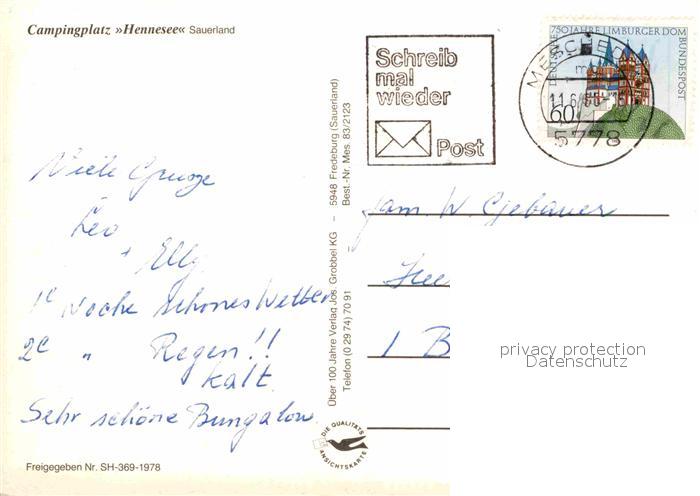 Campingplatz »Hennesee« Sauerland
Viele Grusse
Leo
+ Elly
1e Woche schones Wetter
2e " Regen!!
kalt
Sehr schöne Bungalow
Freigegeben Nr. SH-369-1978
Über 100 Jahre Verlag Jos. Grobbel KG – 5948 Fredeburg (Sauerland)
Telefon (0 29 74) 70 91 – Best.-Nr. Mes. 83/2123
DIE QUALITÄTS
ANSICHTSKARTE
Schreib
mal
wieder
Post
MESCHEDE
11.6.
5778
750 JAHRE LIMBURGER DOM
DEUTSCHE BUNDESPOST
60
Fam W Gebauer
1 B
privacy protection
Datenschutz